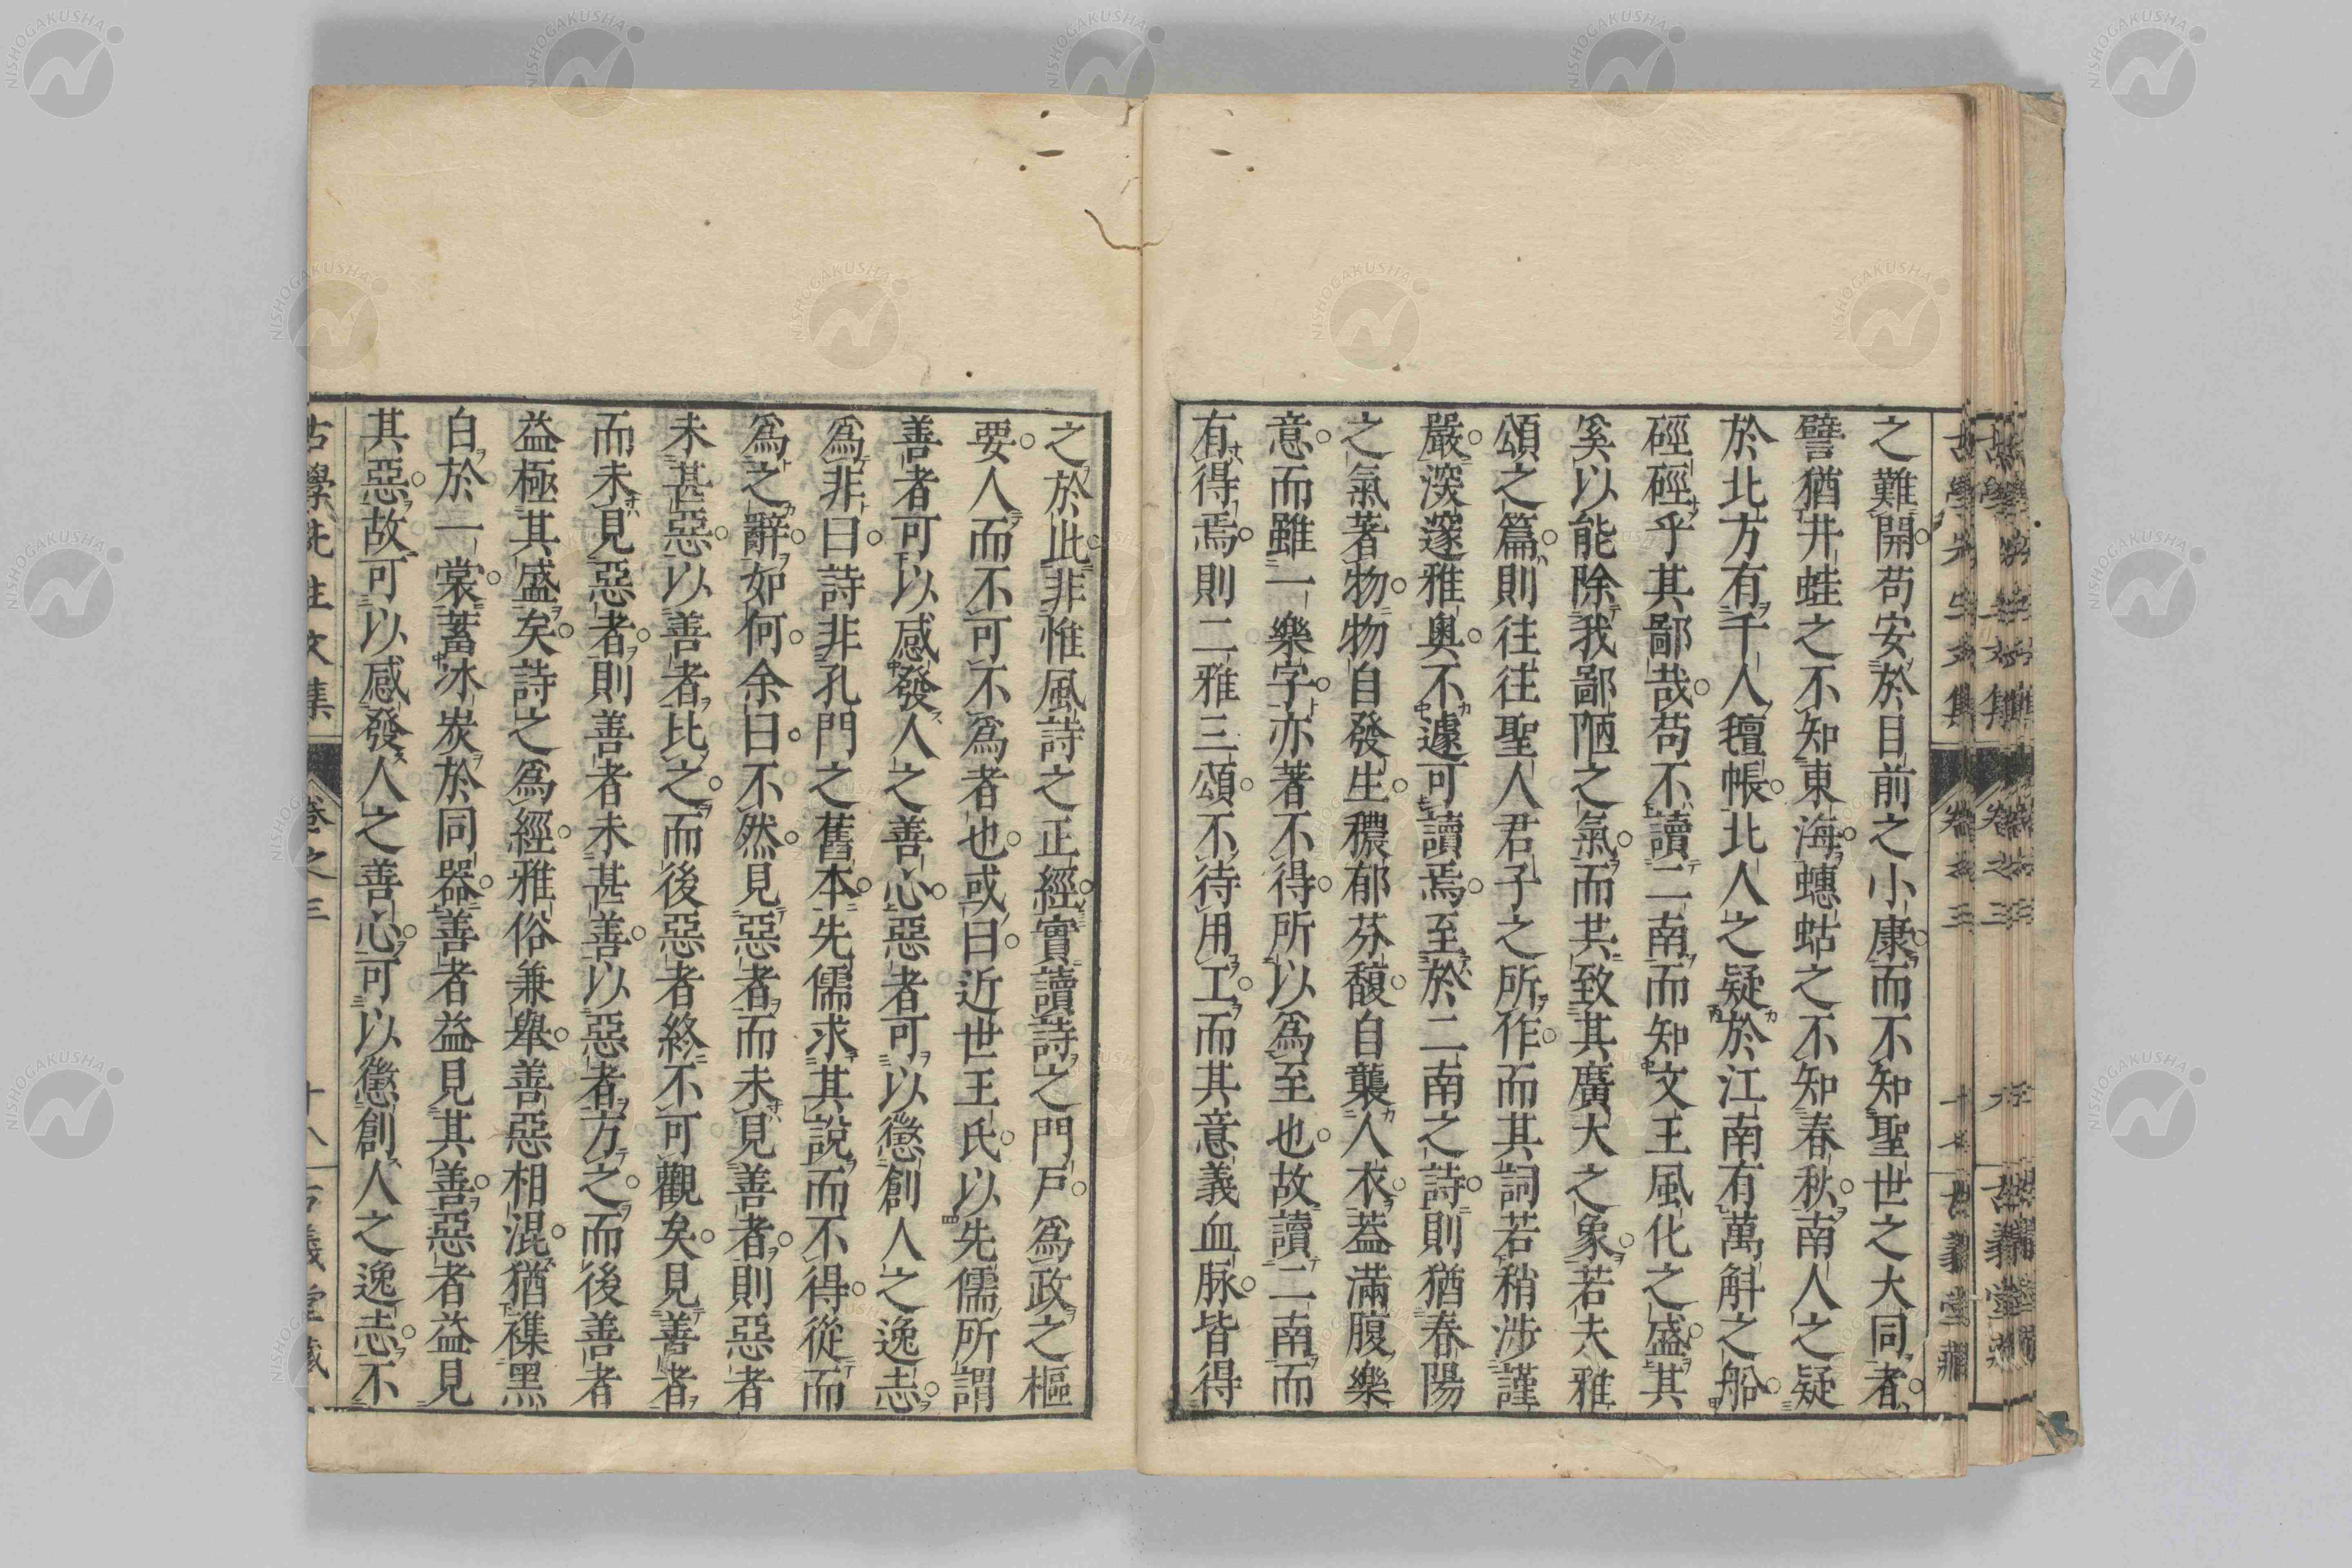 之難開苟安於目前之小康而不知聖世之大同者
譬猶井蛙之不知東海蟪蛄之不知春秋南人之疑
於北方有千人氊帳北人之疑於江南有萬斛之船
硜硜乎其鄙哉苟不讀二南而知文王風化之盛其
奚以能除我鄙陋之氣而其致其廣大之象若夫雅
頌之篇則往往聖人君子之所作而其詞若稍涉謹
嚴深邃雅奧不遽可讀焉至於二南之詩則猶春陽
之氣著物物自發生穠郁芬馥自襲人衣葢滿腹樂
意而雖一樂字亦著不得所以爲至也故讀二南而
有得焉則二雅三頌不待用工而其意義血脉皆得
之於此非惟風詩之正經實讀詩之門戶爲政之樞
要人而不可不爲者也或曰近世王氏以先儒所謂
善者可以感發人之善心惡者可以懲創人之逸志
爲非曰詩非孔門之舊本先儒求其說而不得從而
爲之辭如何余曰不然見惡者而未見善者則惡者
未甚惡以善者比之而後惡者終不可觀矣見善者
而未見惡者則善者未甚善以惡者方之而後善者
益極其盛矣詩之爲經雅俗兼舉善惡相混猶襍黑
白於一裳蓄冰炭於同器善者益見其善惡者益見
其惡故可以感發人之善心可以懲創人之逸志不
古學先生文集 卷之三 十八 古義堂藏